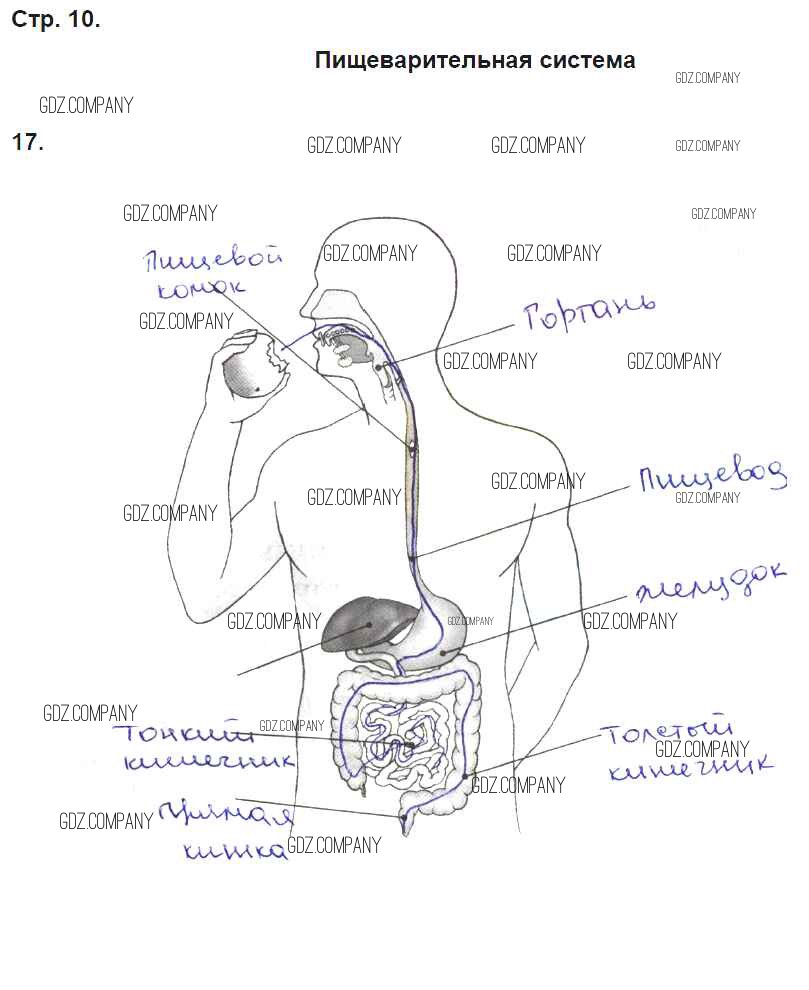 Стр. 10.
Пищеварительная система
GDZ.COMPANY
GDZ.COMPANY
17.
GDZ.COMPANY
GDZ.COMPANY
GDZ.COMPANY
GDZ.COMPANY
GDZ.COMPANY
Пищевой
GDZ.COMPANY
GDZ.COMPANY
комок
Гортань
GDZ.COMPANY
GDZ.COMPANY
GDZ.COMPANY
Пищевод
GDZ.COMPANY
GDZ.COMPANY
GDZ.COMPANY
GDZ.COMPANY
желудок
GDZ.COMPANY
GDZ.COMPANY
GDZ.COMPANY
GDZ.COMPANY
Тонкий
GDZ.COMPANY
кишечник
Толстый
GDZ.COMPANY
кишечник
GDZ.COMPANY
Прямая
GDZ.COMPANY
кишка
GDZ.COMPANY